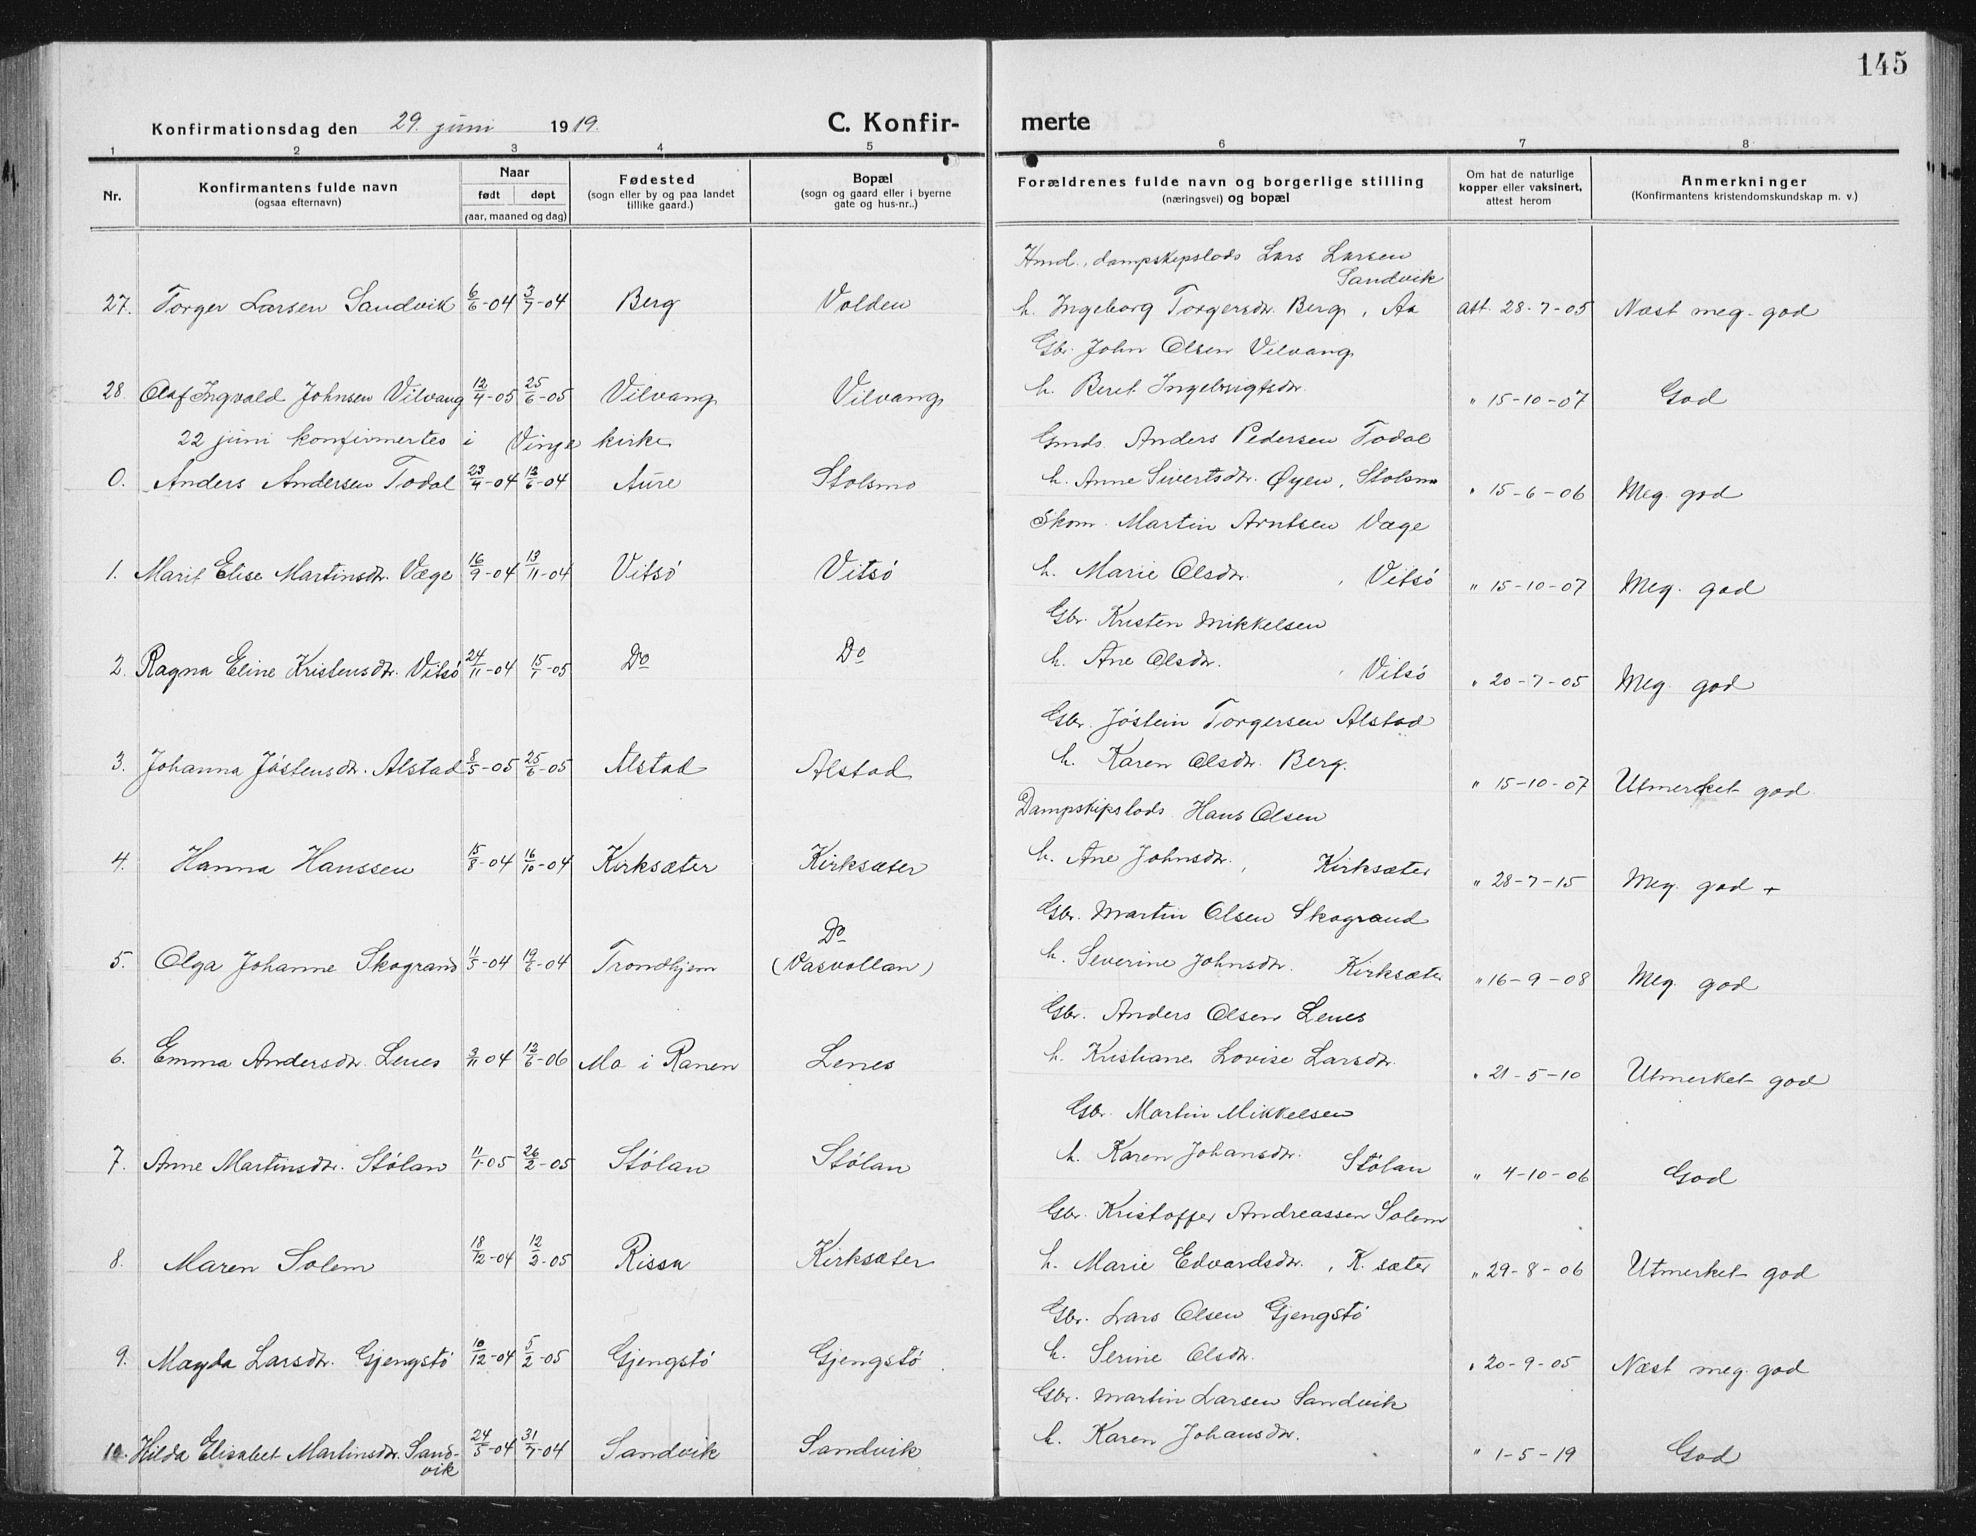 145
Konfirmationsdag den 29. juni 1919.
C. Konfir-
merte
1 2 3 4 5 6 7 8
Nr.
Konfirmantens fulde navn
(ogsaa efternavn)
Naar
født døpt
(aar, maaned og dag)
Fødested
(sogn eller by og paa landet
tillike gaard.)
Bopæl
(sogn og gaard eller i byerne
gate og hus-nr..)
Forældrenes fulde navn og borgerlige stilling
(næringsvei) og bopæl
Om hat de naturlige
kopper eller vaksinert,
attest herom
Anmerkninger
(Konfirmantens kristendomskundskap m. v.)
Kmd., dampskipslods Lars Larsen
Sandvik
27. Torger Larsen Sandvik 6/6-04 3/7-04 Berg Volden h. Ingeborg Torgersdr. Berg, Aa att. 28-7-05 Næst meg. god
Gbr. John Olsen Vilvang
28. Olaf Ingvald Johnsen Vilvang 12/4-05 25/6-05 Vilvang Vilvang h. Beret Ingebrigtsdr. " 15-10-07 God
22 juni konfirmertes i Vinje kirke
Gmds. Anders Pedersen Todal
0. Anders Andersen Todal 23/4-04 12/6-04 Aure Stolsmo h. Anne Sivertsdr. Øyen, Stolsmo " 15-6-06 Meg. god
Skom. Martin Arntsen Væge
1. Marit Elise Martinsdr. Væge 16/9-04 13/11-04 Vitsö Vitsö h. Marie Olsdr. , Vitsö " 15-10-07 Meg. god
Gbr. Kristen Mikkelsen
2. Ragna Eline Kristensdr. Vitsö 24/11-04 15/1-05 Do Do h. Ane Olsdr. , Vitsö " 20-7-05 Meg. god
Gbr. Jöstein Torgersen Alstad
3. Johanna Jöstensdr. Alstad 8/5-05 25/6-05 Alstad Alstad h. Karen Olsdr. Berg. " 15-10-07 Utmerket god
Dampskipslods Hans Olsen
4. Hanna Hanssen 15/8-04 16/10-04 Kirksæter Kirksæter h. Ane Johnsdr. , Kirksæter " 28-7-15 Meg. god +
Gbr. Martin Olsen Skogrand
5. Olga Johanne Skogrand 11/5-04 19/6-04 Trondhjem Do (Vaevollan) h. Severine Johnsdr. Kirksæter " 16-9-08 Meg. god
Gbr. Anders Olsen Lenes
6. Emma Andersdr. Lenes 2/11 04 12/6-06 Mo i Ranen Lenes h. Kristiane Lovise Larsdr. " 21-5-10 Utmerket god
Gbr. Martin Mikkelsen
7. Anne Martinsdr. Stölan 11/1-05 26/2-05 Stölan Stölan h. Karen Johansdr. Stölan " 4-10-06 God
Gbr. Kristoffer Andreassen Solem
8. Maren Solem 18/12-04 12/2-05 Rissa Kirksæter h. Marie Edvardsdr., K. sæter " 29-8-06 Utmerket god
Gbr. Lars Olsen Gjengstö
9. Magda Larsdr. Gjengstö 10/12-04 5/2-05 Gjengstö Gjengstö. h. Serine Olsdr. " 20-9-05 Næst meg. god
Gbr. Martin Larsen Sandvik
10. Hilda Elisabet Martinsdr. Sand- 24/5-04 31/7-04 Sandvik Sandvik h. Karen Johansdr. " 1-5-19 God
vik